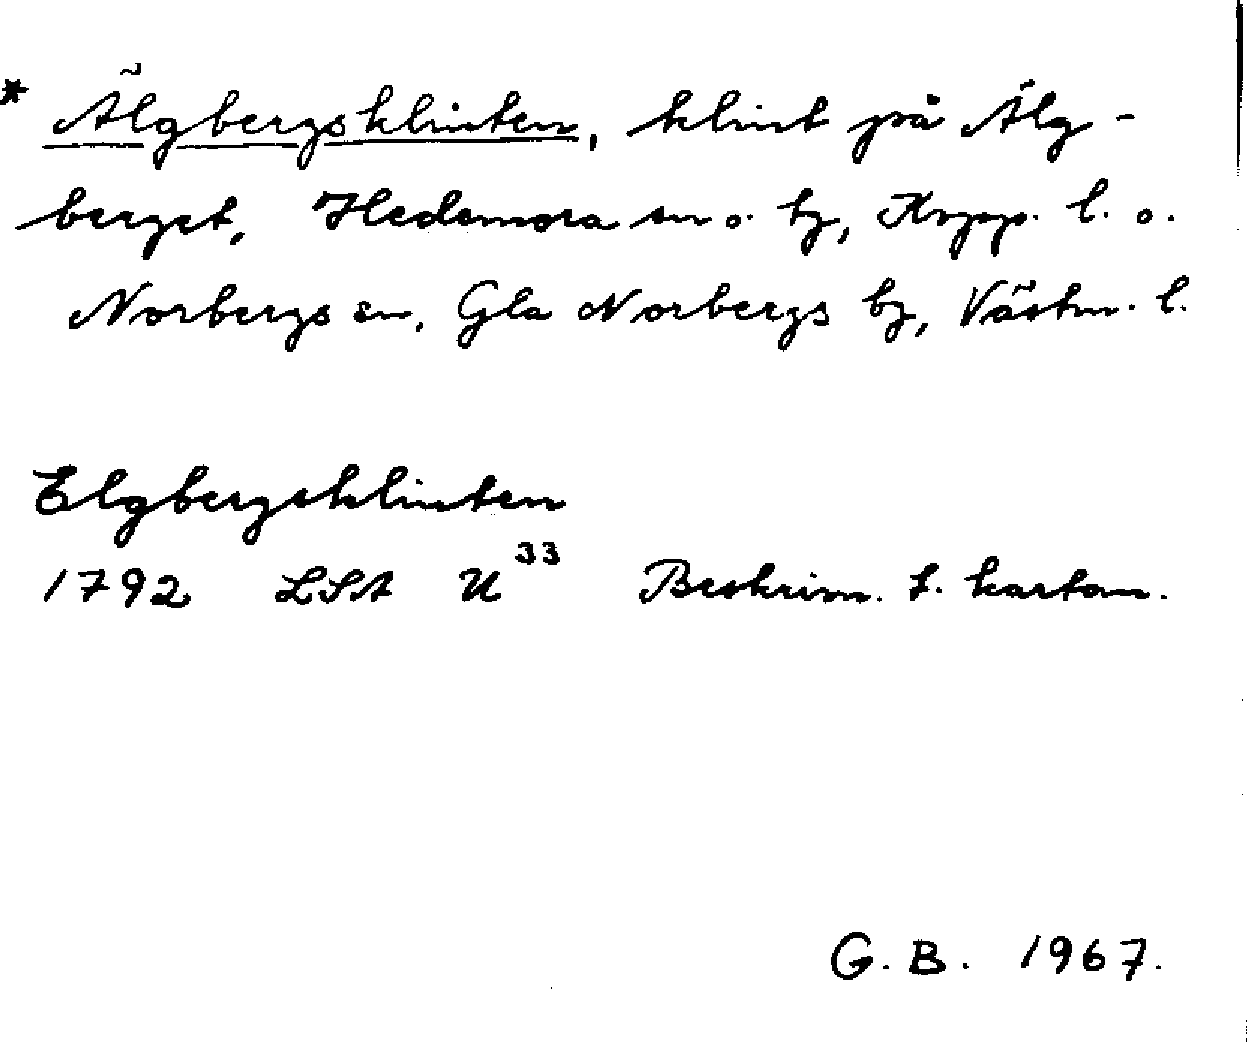 * Älgbergsklinten, klint på Älg-
berget, Hedemora sn o. by, Kopp. l. o.
Norbergs sn, Gla Norbergs by, Västm. l.
Elgbergsklinten
1792 LSA U 33 Beskrivn. t. kartan.
G. B. 1967.